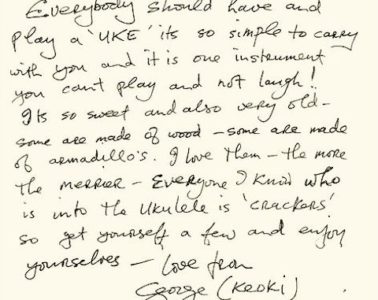 Everybody should have and
play a 'UKE' its so simple to carry
with you and it is one instrument
you cant play and not laugh!
Its so sweet and also very old -
some are made of wood - some are made
of armadillo's. I love them - the more
the merrier - Everyone I know who
is into the Ukulele is 'crackers'
so get yourself a few and enjoy
yourselves - Love from
George (Keoki)